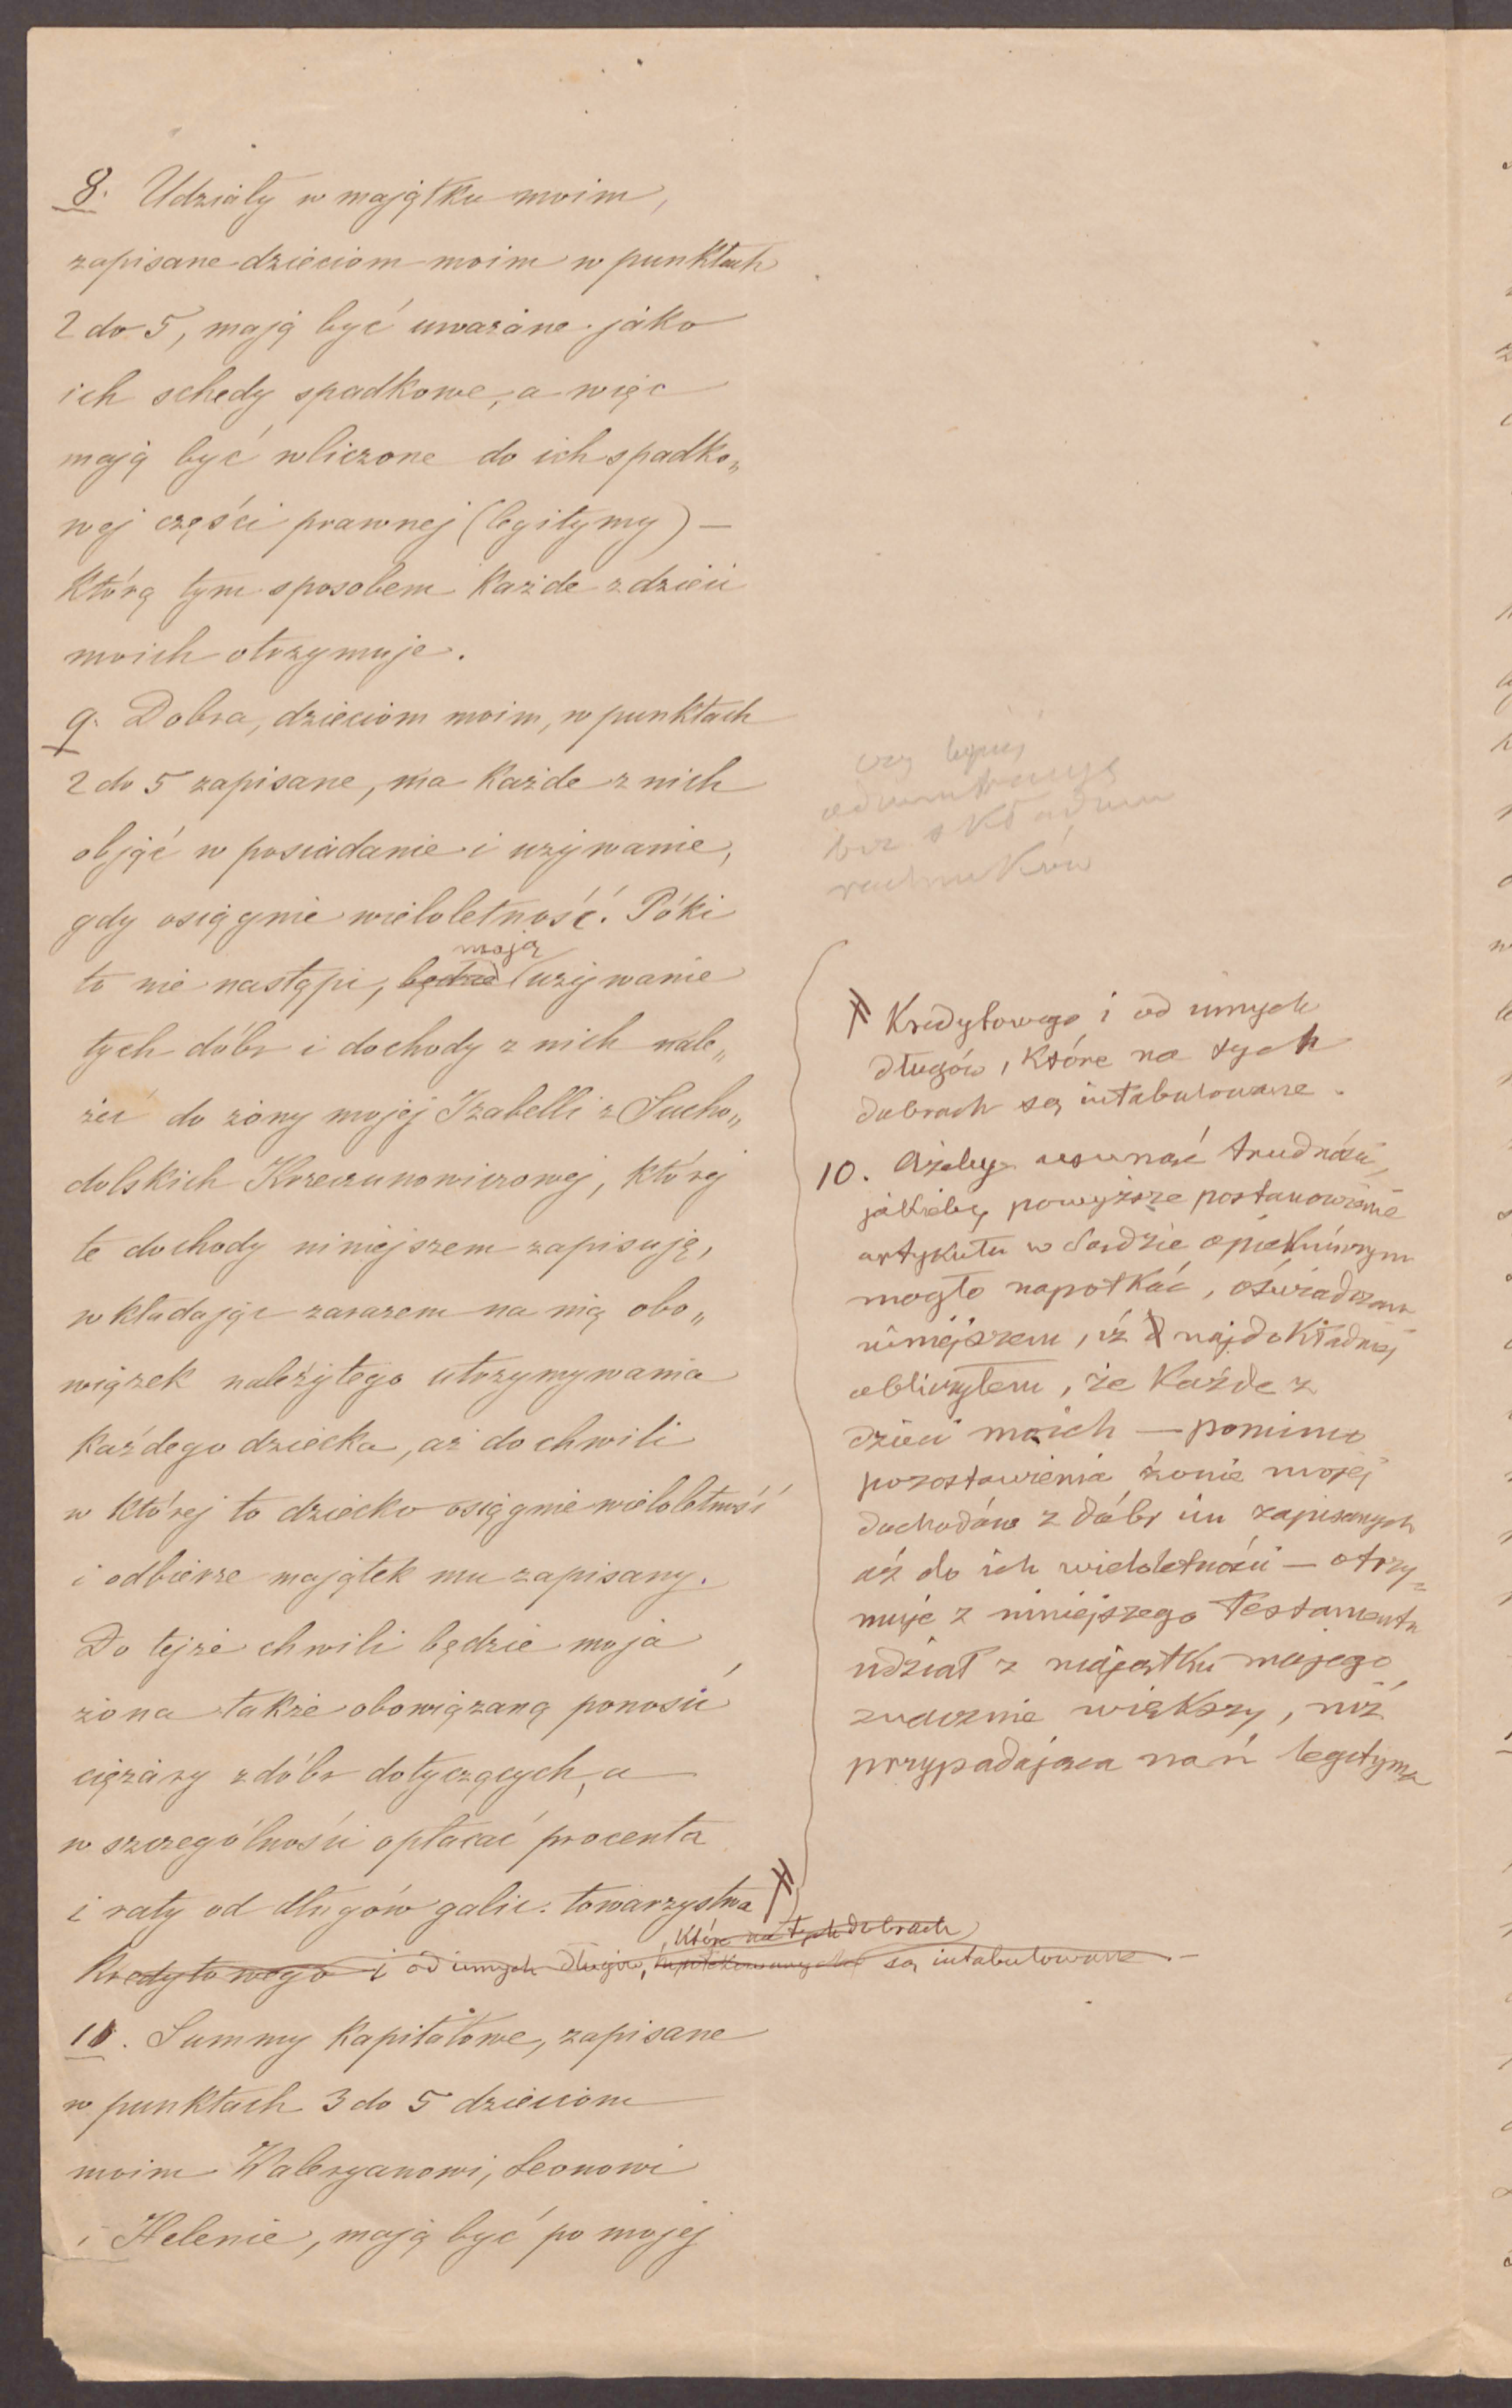 8. Udziały w majątku moim,
zapisane dzieciom moim w punktach
2 do 5, mają być uważane jako
ich schedy spadkowe, a więc
mają być wliczone do ich spadko„
wej części prawnej (legitymy) —
którą tym sposobem każde z dzieci
moich otrzymuje.
9. Dobra, dzieciom moim, w punktach
2 do 5 zapisane, ma każde z nich
objąć w posiadanie i używanie,
gdy osiągnie wieloletność. Póki
mają
to nie nastąpi, będzie używanie
tych dóbr i dochody z nich nale„
żeć do żony mojej Izabelli z Sucho„
dolskich Krzeczunowiczowej, której
te dochody niniejszem zapisuję,
wkładając zarazem na nią obo„
wiązek należytego utrzymywania
każdego dziecka, aż do chwili
w której to dziecko osiągnie wieloletność
i odbierze majątek mu zapisany.
Do tejże chwili będzie moja
żona także obowiązaną ponosić
ciężary z dóbr dotyczących, a
w szczególności opłacać procenta
i raty od długów galic. towarzystwa #
które na tych dobrach
Kredytowego i od innych długów, są intabulowane. —
11. Summy kapitałowe, zapisane
w punktach 3 do 5 dzieciom
moim Waleryanowi, Leonowi
i Helenie, mają być po mojej
czy lepiej
bez składania
rachunków
# Kredytowego i od innych
długów, które na tych
dobrach są intabulowane.
10. Ażeby usunąć trudności,
jakieby powyższe postanowienie
artykułu w Sądzie opiekuńczym
mogło napotkać, oświadczam
niniejszem, iż najdokładniej
obliczyłem, że każde z
dzieci moich — pomimo
pozostawienia żonie mojej
dochodów z dóbr im zapisanych
aż do ich wieloletności — otrzy„
muje z niniejszego Testamentu
udział z majątku mojego
znacznie większy, niż
przypadająca nań legityma